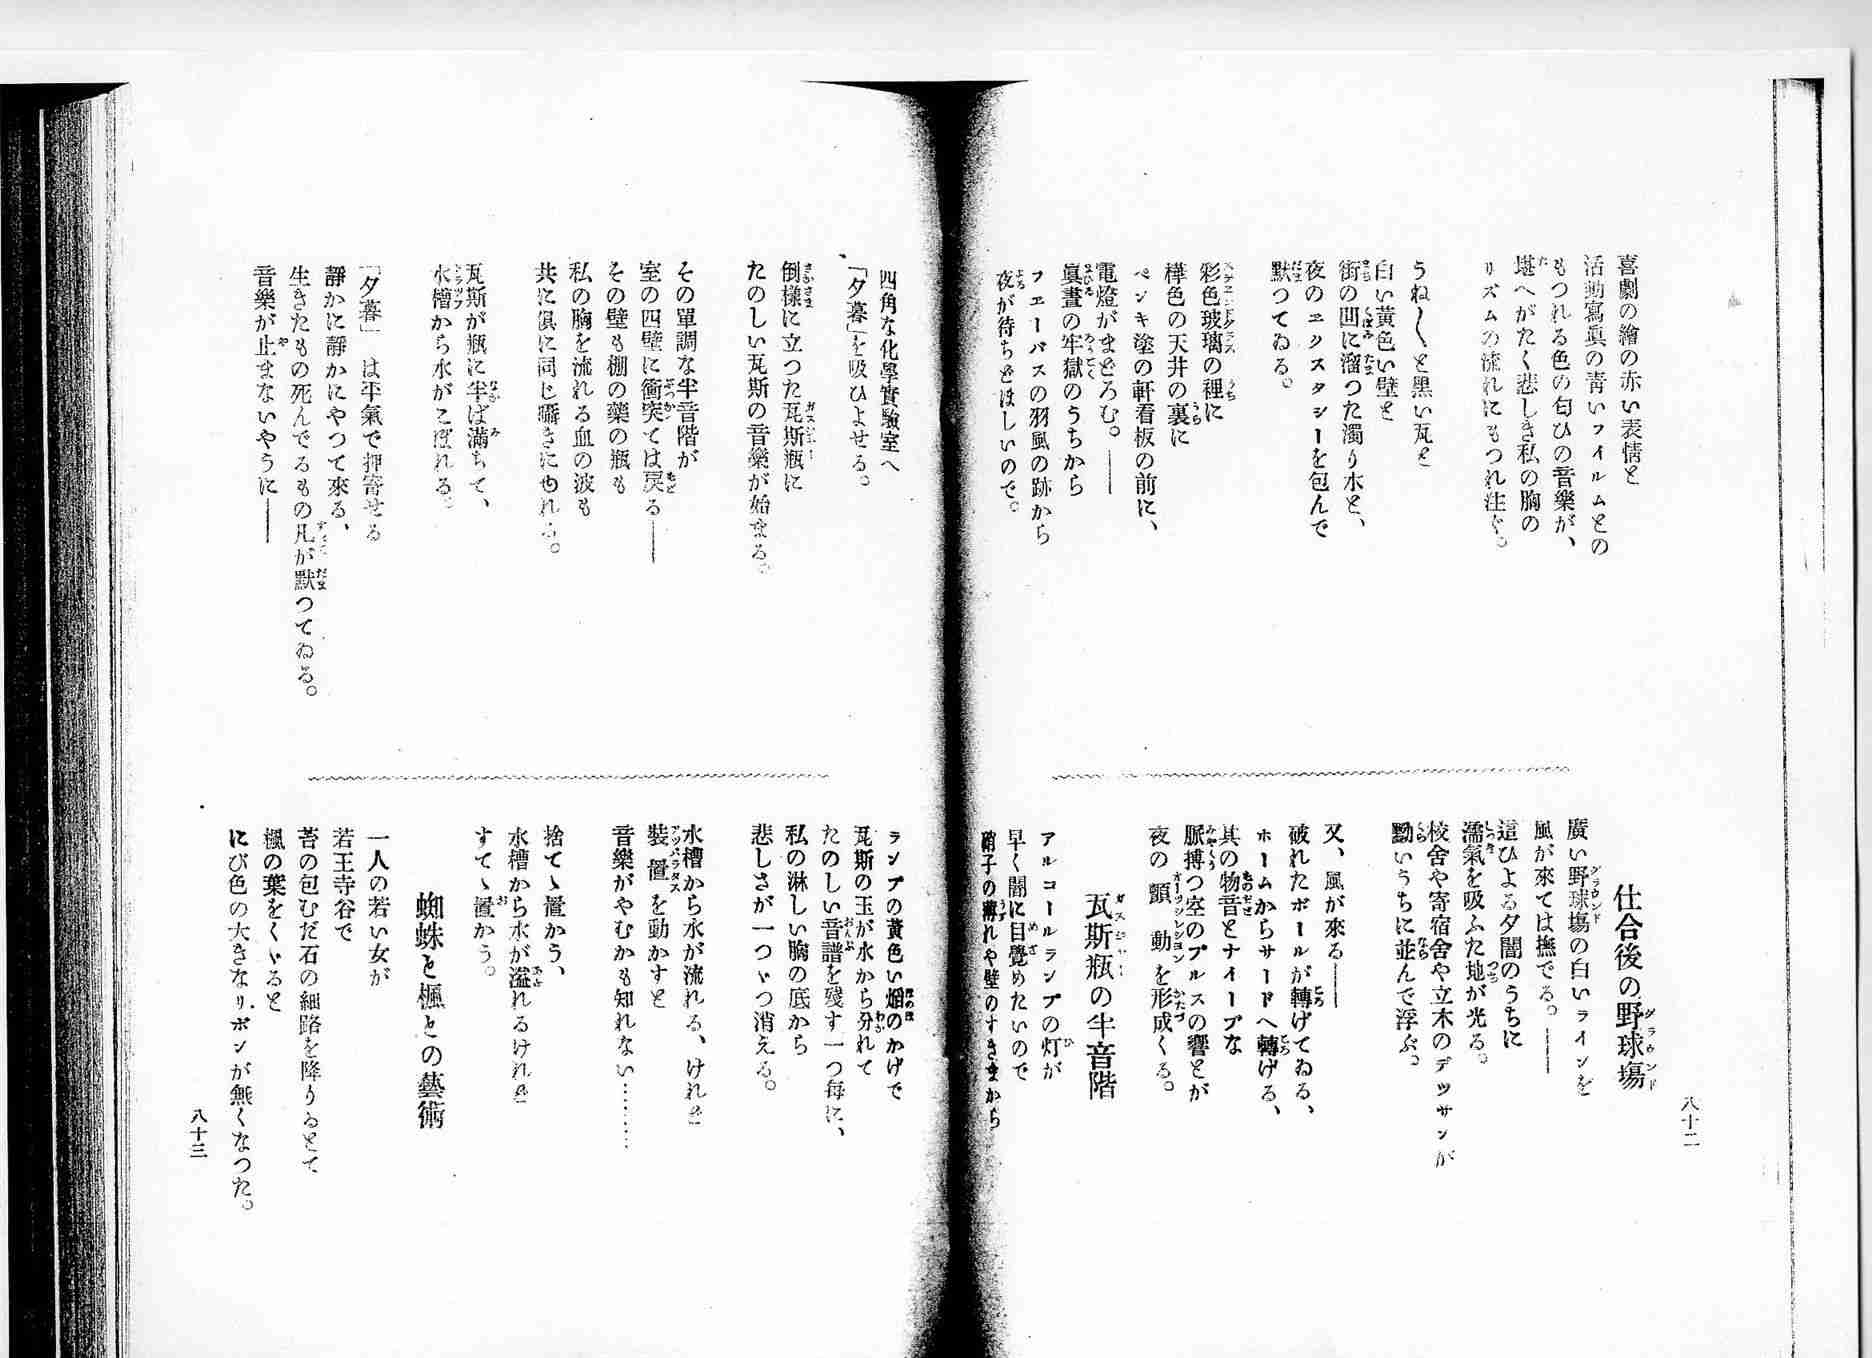 喜劇の繪の赤い表情と
活動寫眞の靑いフイルムとの
もつれる色の匂ひの音樂が、
堪へがたく悲しき私の胸の
リズムの流れにもつれ注ぐ。
うね〱と黑い瓦と
白い黃色い壁と
街の凹に溜つた濁り水と、
夜のエクスタシーを包んで
默つてゐる。
彩色玻璃の裡に
樺色の天井の裏に
ペンキ塗の軒看板の前に、
電燈がまどろむ。――
眞晝の牢獄のうちから
フエーバスの羽風の跡から
夜が待ちどほしいので。
仕合後の野球場
廣い野球場の白いラインを
風が來ては撫でる。――
這ひよる夕闇のうちに
濡氣を吸ふた地が光る。
校舍や寄宿舍や立木のデツサンが
黝いうちに並んで浮ぶ。
又、風が來る――
破れたボールが轉げてゐる、
ホームからサードへ轉げる、
其の物音とナイーブな
脈搏つ空のプルスの響とが
夜の顫動を形成くる。
瓦斯瓶の半音階
アルコールランプの灯が
早く闇に目覺めたいので
硝子の薄れや壁のすきまから
四角な化學實驗室へ
「夕暮」を吸ひよせる。
倒樣に立つた瓦斯瓶に
たのしい瓦斯の音樂が始まる。
その單調な半音階が
室の四壁に衝突ては戾る――
その壁も棚の藥の瓶も
私の胸を流れる血の波も
共に俱に同じ囁きにゆれる。
瓦斯が瓶に半ば滿ちて、
水槽から水がこぼれる。
「夕暮」は平氣で押寄せる
靜かに靜かにやつて來る、
生きたもの死んでるもの凡が默つてゐる。
音樂が止まないやうに――
ランプの黃色い焔のかげで
瓦斯の玉が水から分れて
たのしい音譜を殘す一つ每に、
私の淋しい胸の底から
悲しさが一つゞつ消える。
水槽から水が流れる、けれど
裝置を動かすと
音樂がやむかも知れない………
捨てゝ置かう、
水槽から水が溢れるけれど
すてゝ置かう。
蜘蛛と楓との藝術
一人の若い女が
若王寺谷で
苔の包むだ石の細路を降りるとて
楓の葉をくゞると
にび色の大きなリボンが無くなつた。
八十二
八十三